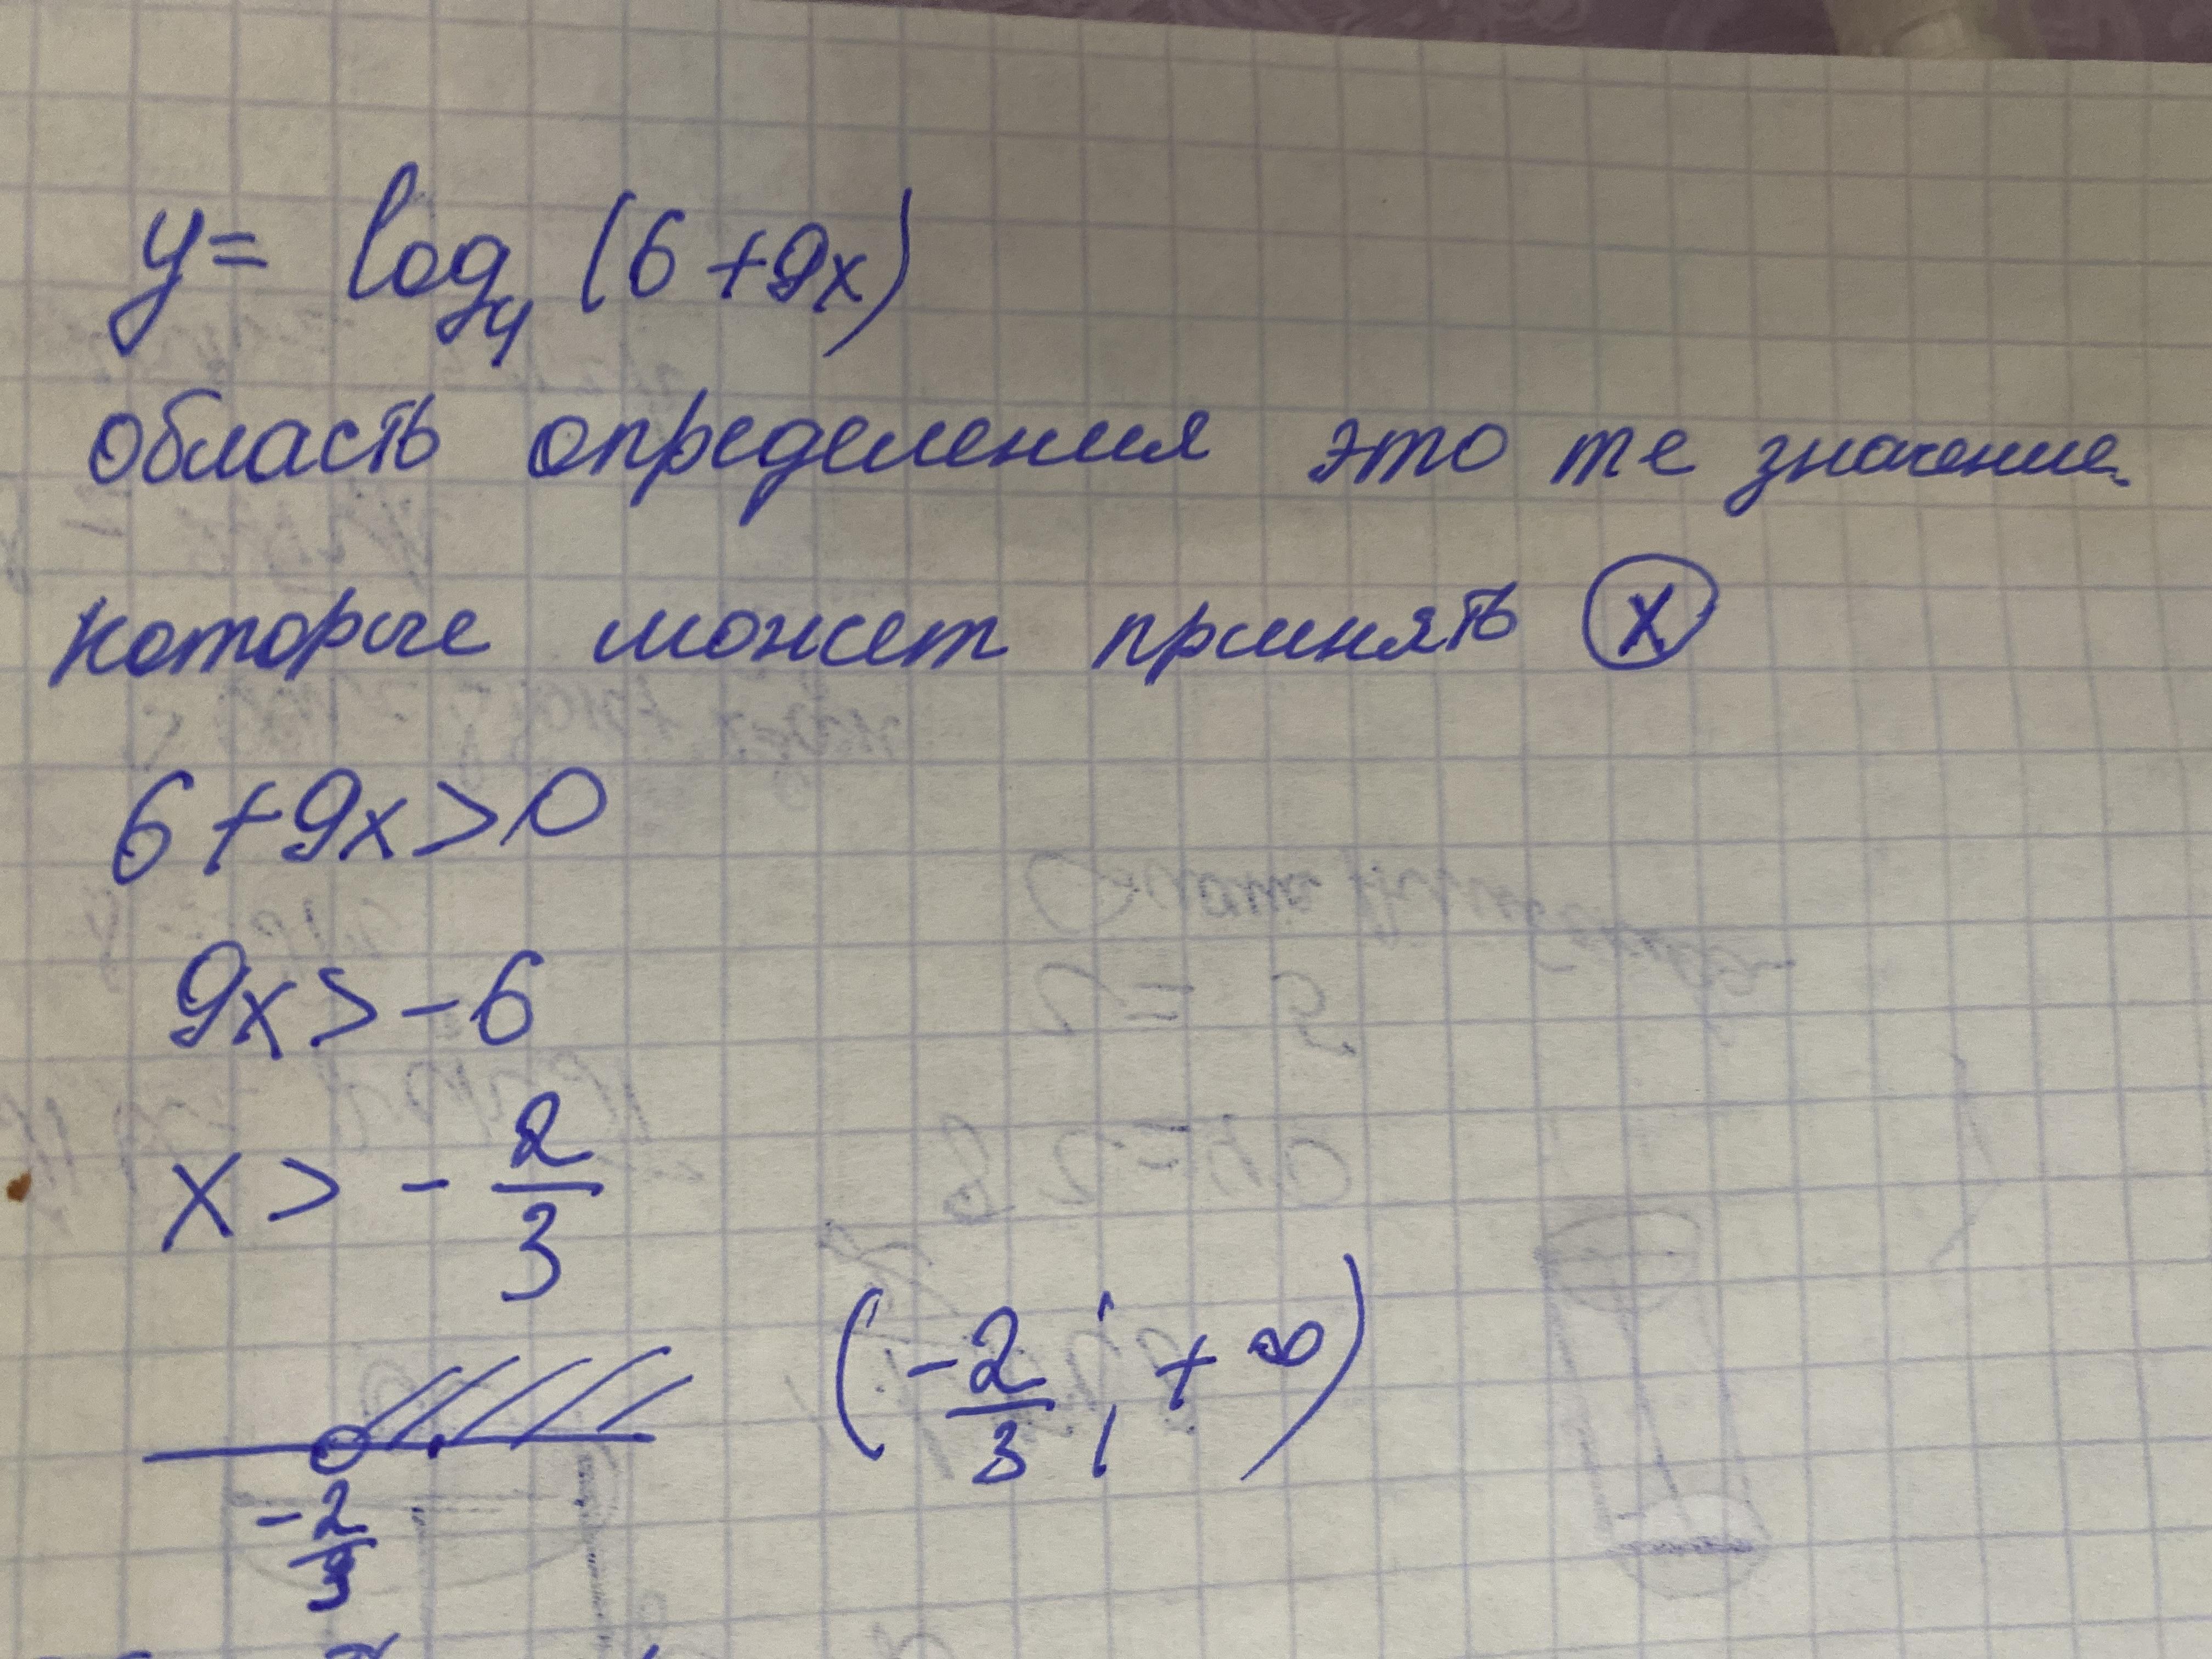 y = log₄ (6 + 9x)
область определения это те значение
которые может принять x
6 + 9x > 0
9x > -6
x > - 2/3
(-2/3 ; + ∞)
-2/3